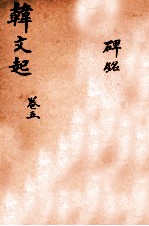 韓文起
卷五
碑銘